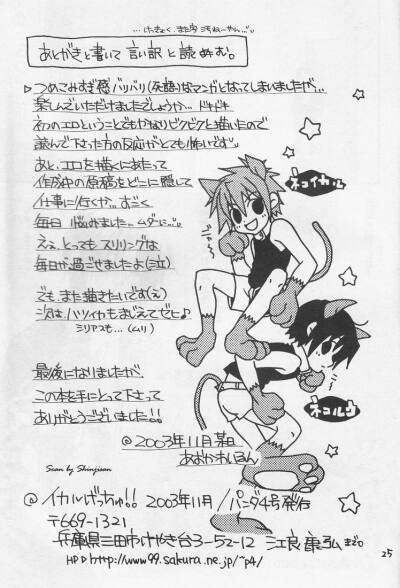 …けっきょく、また字 汚ねーやん…
あとがきと書いて 言い訳と読めます。
つめこみすぎ感バリバリ(死語)なマンガとなってしまいましたが…
楽しんでいただけましたでしょうか… ドキドキ
初のエロということでもかなりビクビクと描いたので
読んで下さった方の反応がとても怖いです
あと、エロを描くにあたって
作成中の原稿をどこに隠して
仕事に行くか… すごく
毎日 悩みました… ムダに…
ええ、とってもスリリングな
毎日が過ごせましたよ(泣)
でも、また描きたいです(え)
次はハツイカもまじえてゼヒ♪
シリアスも…(ムリ)
最後になりましたが
この本を手にとって下さって
ありがとうございました!!
@2003年11月某日
ネコイカル
ネコルウ
Scan by Shinjisan
@イカルげっちゅ!! 2003年11月/パンダ4号発行
〒669-1321
兵庫県三田市けやき台3-52-12
HP▷http://www99.sakura.ne.jp/~p4/
25